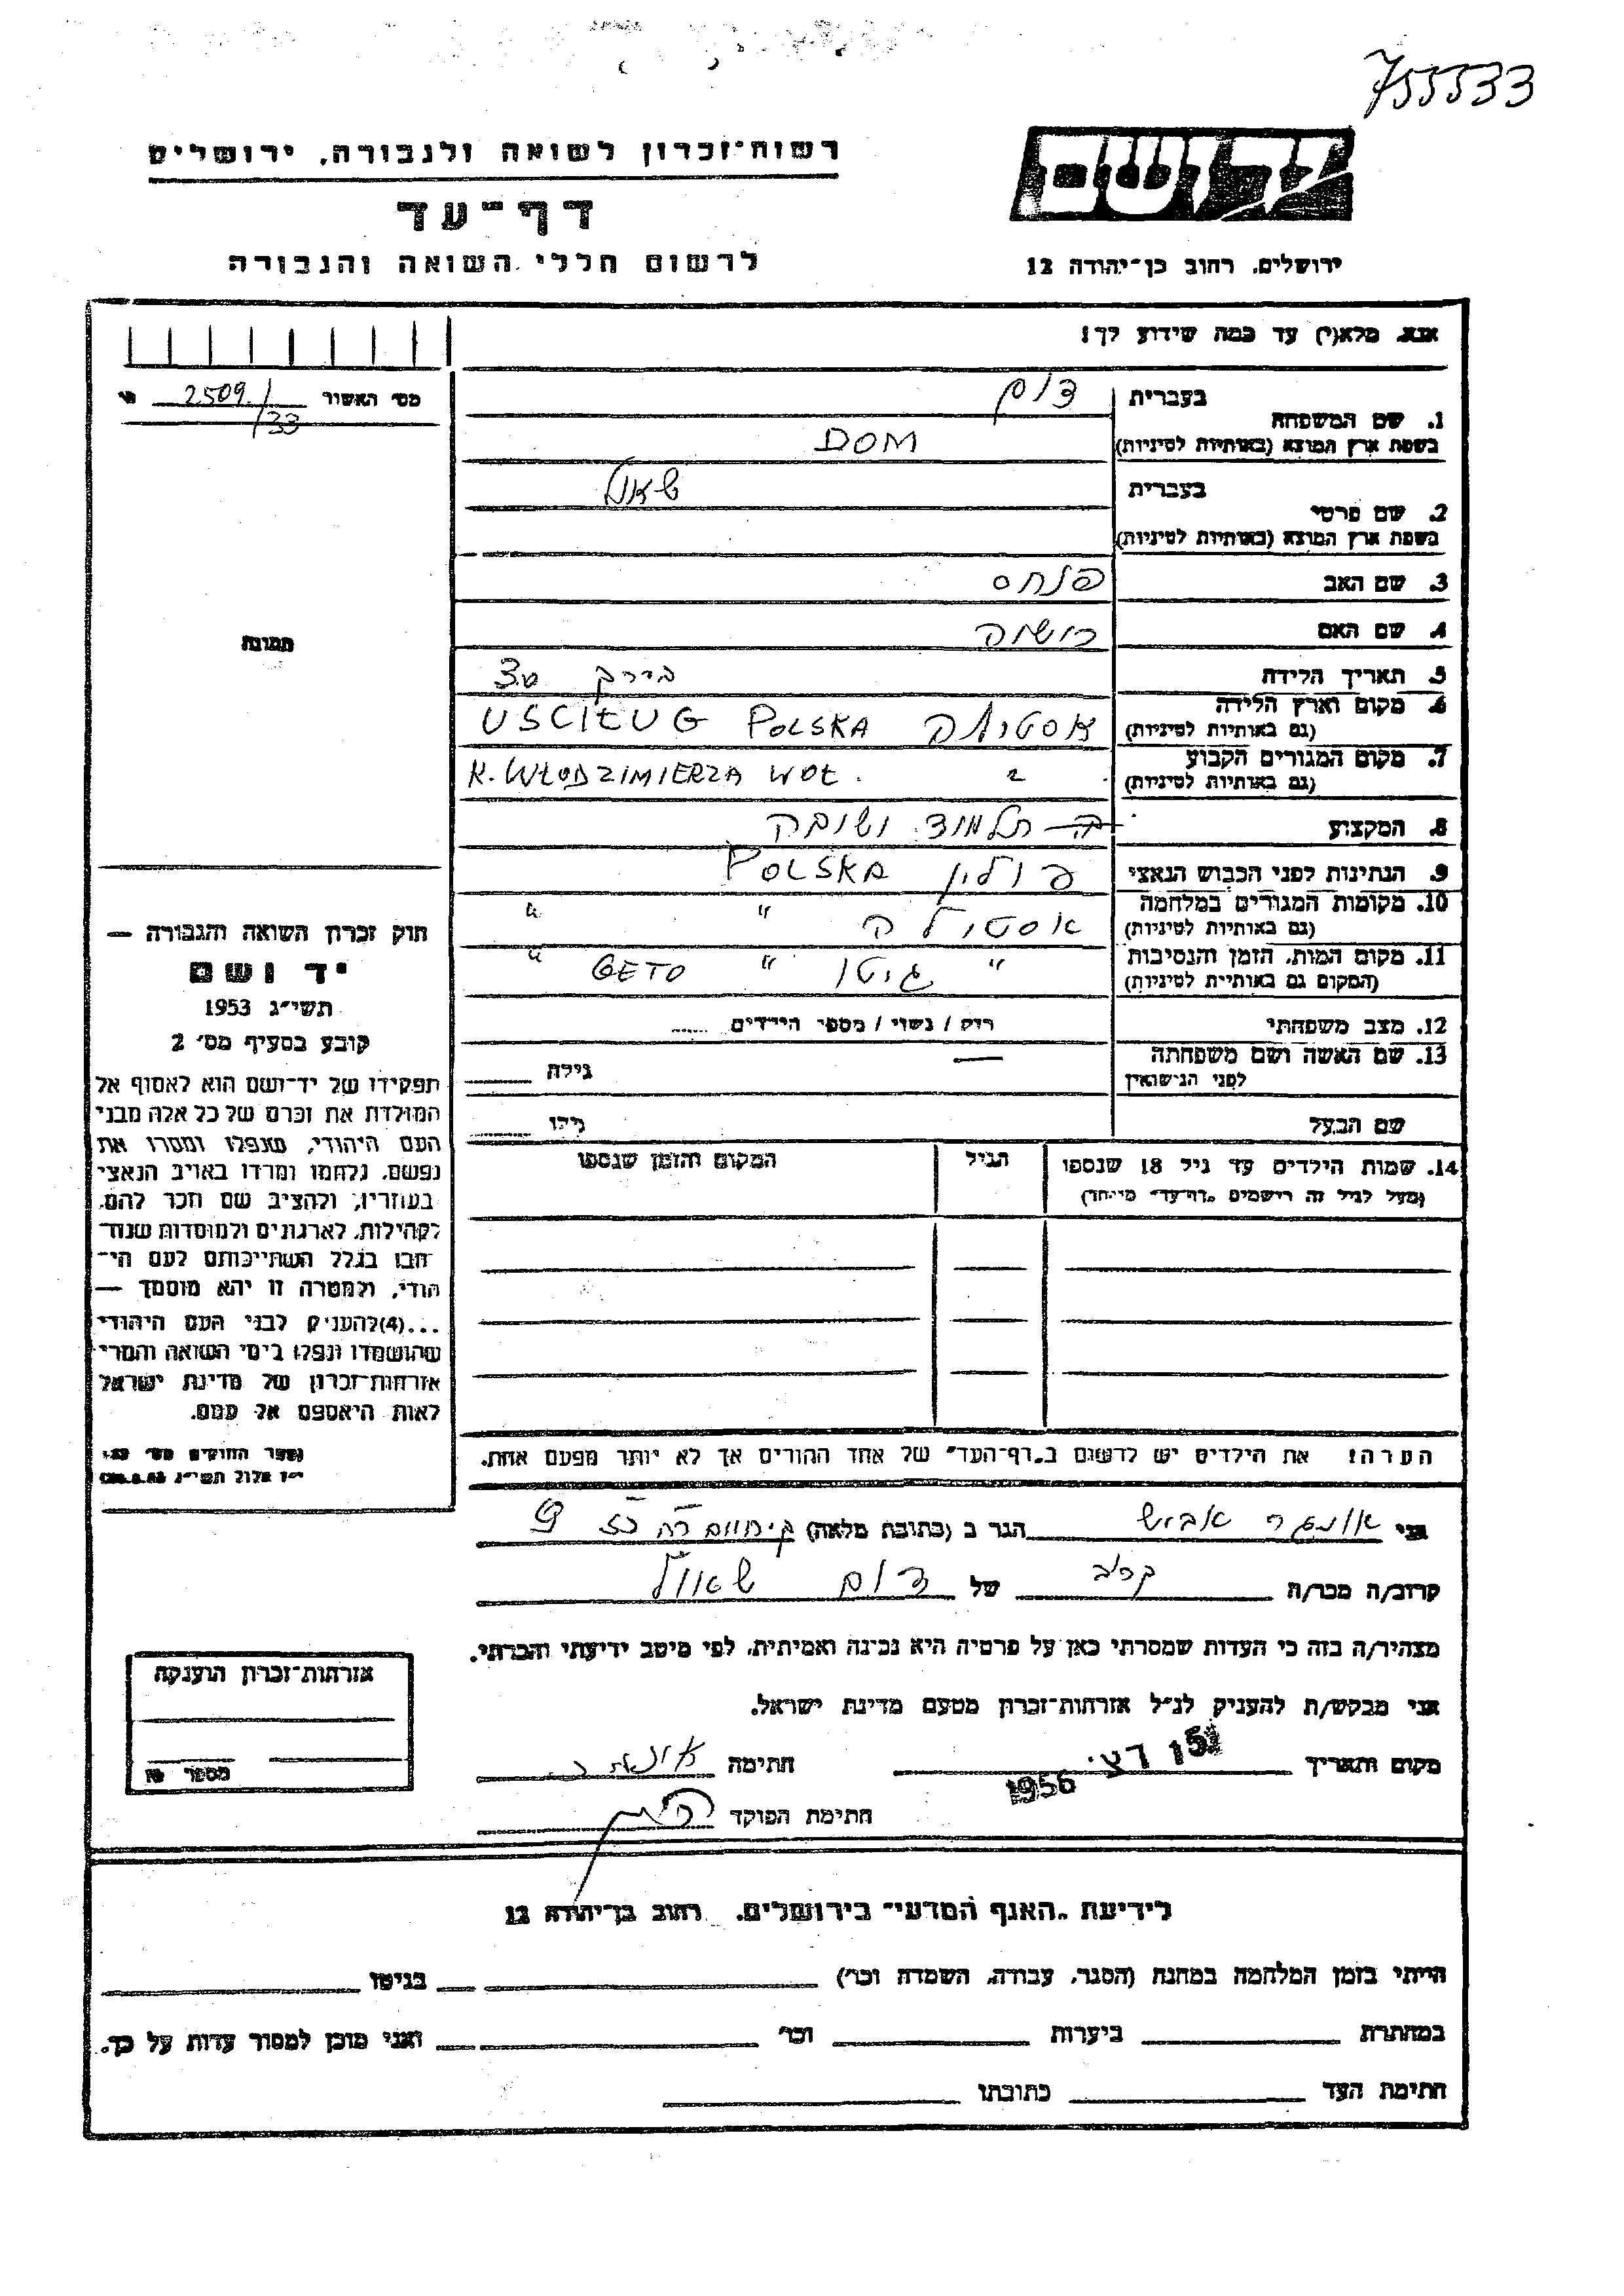 755533
רשות־זכרון לשואה ולגבורה, ירושלים
יד ושם
דף־עד
לרשום חללי השואה והגבורה
ירושלים, רחוב בן־יהודה 12
אנא, מלא(י) עד כמה שידוע לך!
מס׳ האשור 2509/33
1. שם המשפחה
בעברית דום
בשפת ארץ המוצא (באותיות לטיניות) DOM
2. שם פרטי
בעברית שאול
בשפת ארץ המוצא (באותיות לטיניות)
3. שם האב פנחס
4. שם האם
5. תאריך הלידה בערך 30
6. מקום וארץ הלידה
(גם באותיות לטיניות) אוסטילה USCIŁUG POLSKA
7. מקום המגורים הקבוע
(גם באותיות לטיניות) K. WŁODZIMIERZA WOŁ.
8. המקצוע תלמוד ישיבה
9. הנתינות לפני הכבוש הנאצי פולין POLSKA
10. מקומות המגורים במלחמה
(גם באותיות לטיניות) אוסטילה " "
11. מקום המות, הזמן והנסיבות
(המקום גם באותיות לטיניות) " גיטו " GETO "
12. מצב משפחתי רוק / נשוי / מספר הילדים ......
13. שם האשה ושם משפחתה
לפני הנישואין — גילה
שם הבעל גילו
14. שמות הילדים עד גיל 18 שנספו
(מעל לגיל זה רושמים „דף־עד״ מיוחד)
הגיל
המקום והזמן שנספו
הערה! את הילדים יש לרשום ב„דף־העד״ של אחד ההורים אך לא יותר מפעם אחת.
תמונה
חוק זכרון השואה והגבורה —
יד ושם
תשי״ג 1953
קובע בסעיף מס׳ 2
תפקידו של יד־ושם הוא לאסוף אל
המולדת את זכרם של כל אלה מבני
העם היהודי, שנפלו ומסרו את
נפשם, נלחמו ומרדו באויב הנאצי
בעוזריו, ולהציב שם וזכר להם,
לקהילות, לארגונים ולמוסדות שנח־
רבו בגלל השתייכותם לעם הי־
הודי, ולמטרה זו יהא מוסמך —
...(4) להעניק לבני העם היהודי
שהושמדו ונפלו בימי השואה והמרי
אזרחות־זכרון של מדינת ישראל
לאות היאספם אל עמם.
אני אונגר הגר ב (כתובת מלאה)
קרוב/ה מכר/ה קרוב של דום שאול
מצהיר/ה בזה כי העדות שמסרתי כאן על פרטיה היא נכונה ואמיתית, לפי מיטב ידיעתי והכרתי.
אני מבקש/ת להעניק לנ״ל אזרחות־זכרון מטעם מדינת ישראל.
מקום ותאריך 15 דצ׳ 1956 חתימה
חתימת הפוקד
אזרחות־זכרון הוענקה
מספר
לידיעת „האגף המדעי״ בירושלים, רחוב בן־יהודה 12
הייתי בזמן המלחמה במחנה (הסגר, עבודה, השמדה וכר׳) בגיטו
במחתרת ביערות וכר׳ ואני מוכן למסור עדות על כך.
חתימת העד כתובתו